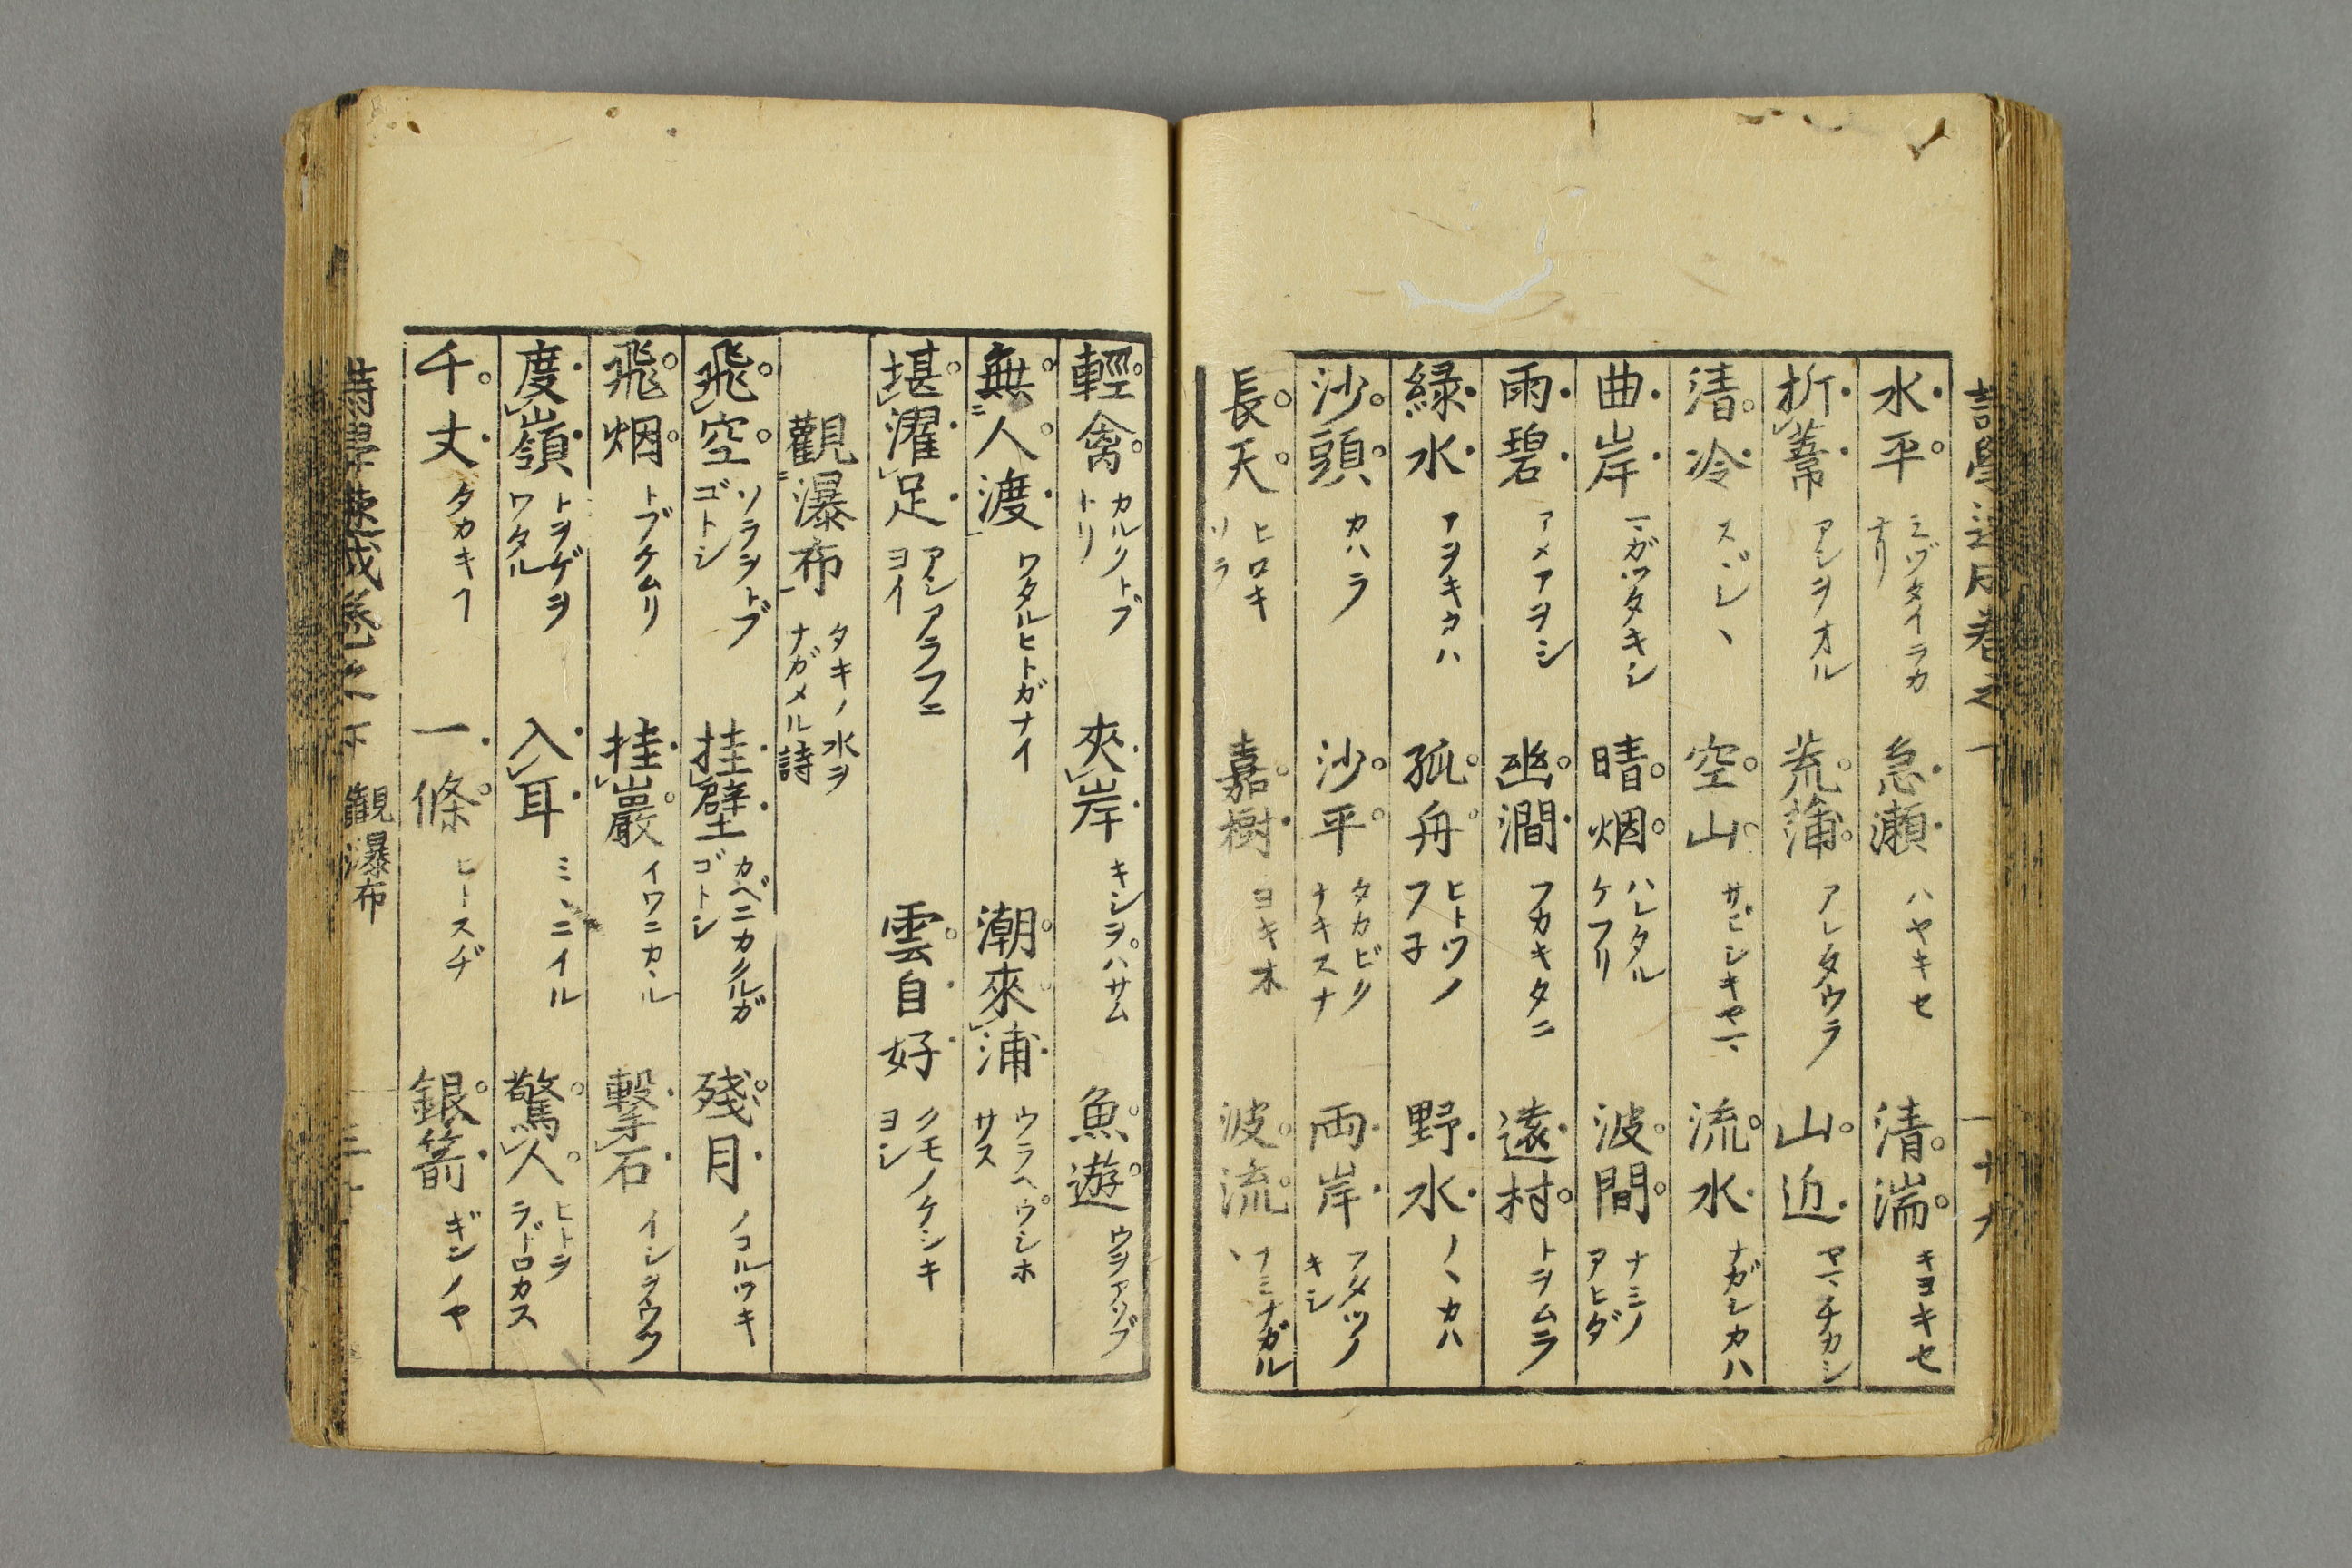 水平 ミヅタイラカナリ 急瀬 ハヤキセ 清湍 キヨキセ
折葦 アシヲオル 荒蒲 アレタウラ 山近 ヤマヽチカシ
清冷 スヾシヽ 空山 サビシキヤマヽ 流水 ナガシカハ
曲岸 マヽガツタキシ 晴烟 ハレタルケフリ 波間 ナミノアヒダ
雨碧 アメアヲシ 幽澗 フカキタニ 遠村 トヲムラ
緑水 アヲキカハ 孤舟 ヒトツノフ子 野水 ノヽカハ
沙頭 カハラ 沙平 タカビクナキスナ 両岸 フタツノキシ
長天 ヒロキソラ 嘉樹 ヨキ木 波流 ナミナガル
輕禽 カルクトブトリ 夾岸 キシヲハサム 魚遊 ウヲアソブ
無人渡 ワタルヒトガナイ 潮來浦 ウラヘウシホサス
堪濯足 アシアラフニヨイ 雲自好 クモノケシキヨシ
觀瀑布 タキノ水ヲナガメル詩
飛空 ソラヲトブゴトシ 挂壁 カベニカクルガゴトシ 殘月 ノコルツキ
飛烟 トブケムリ 挂巖 イワニカヽル 撃石 イシヲウツ
度嶺 トヲゲヲワタル 入耳 ミヽニイル 驚人 ヒトヲヲドロカス
千丈 タカキコト 一條 ヒトスヂ 銀箭 ギンノヤ
詩學速成卷之下 觀瀑布